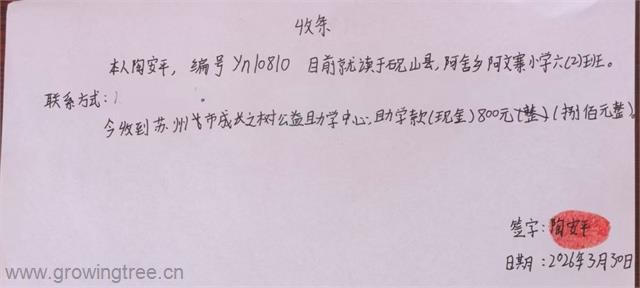 收条
本人陶安平，编号Yn10810 目前就读于砚山县，阿舍乡阿文寨小学六(2)班。
联系方式：1
今收到苏州市成长之树公益助学中心，助学款(现金)800元(整)(捌佰元整)
签字：陶安平
日期：2026年3月30日
www.growingtree.cn